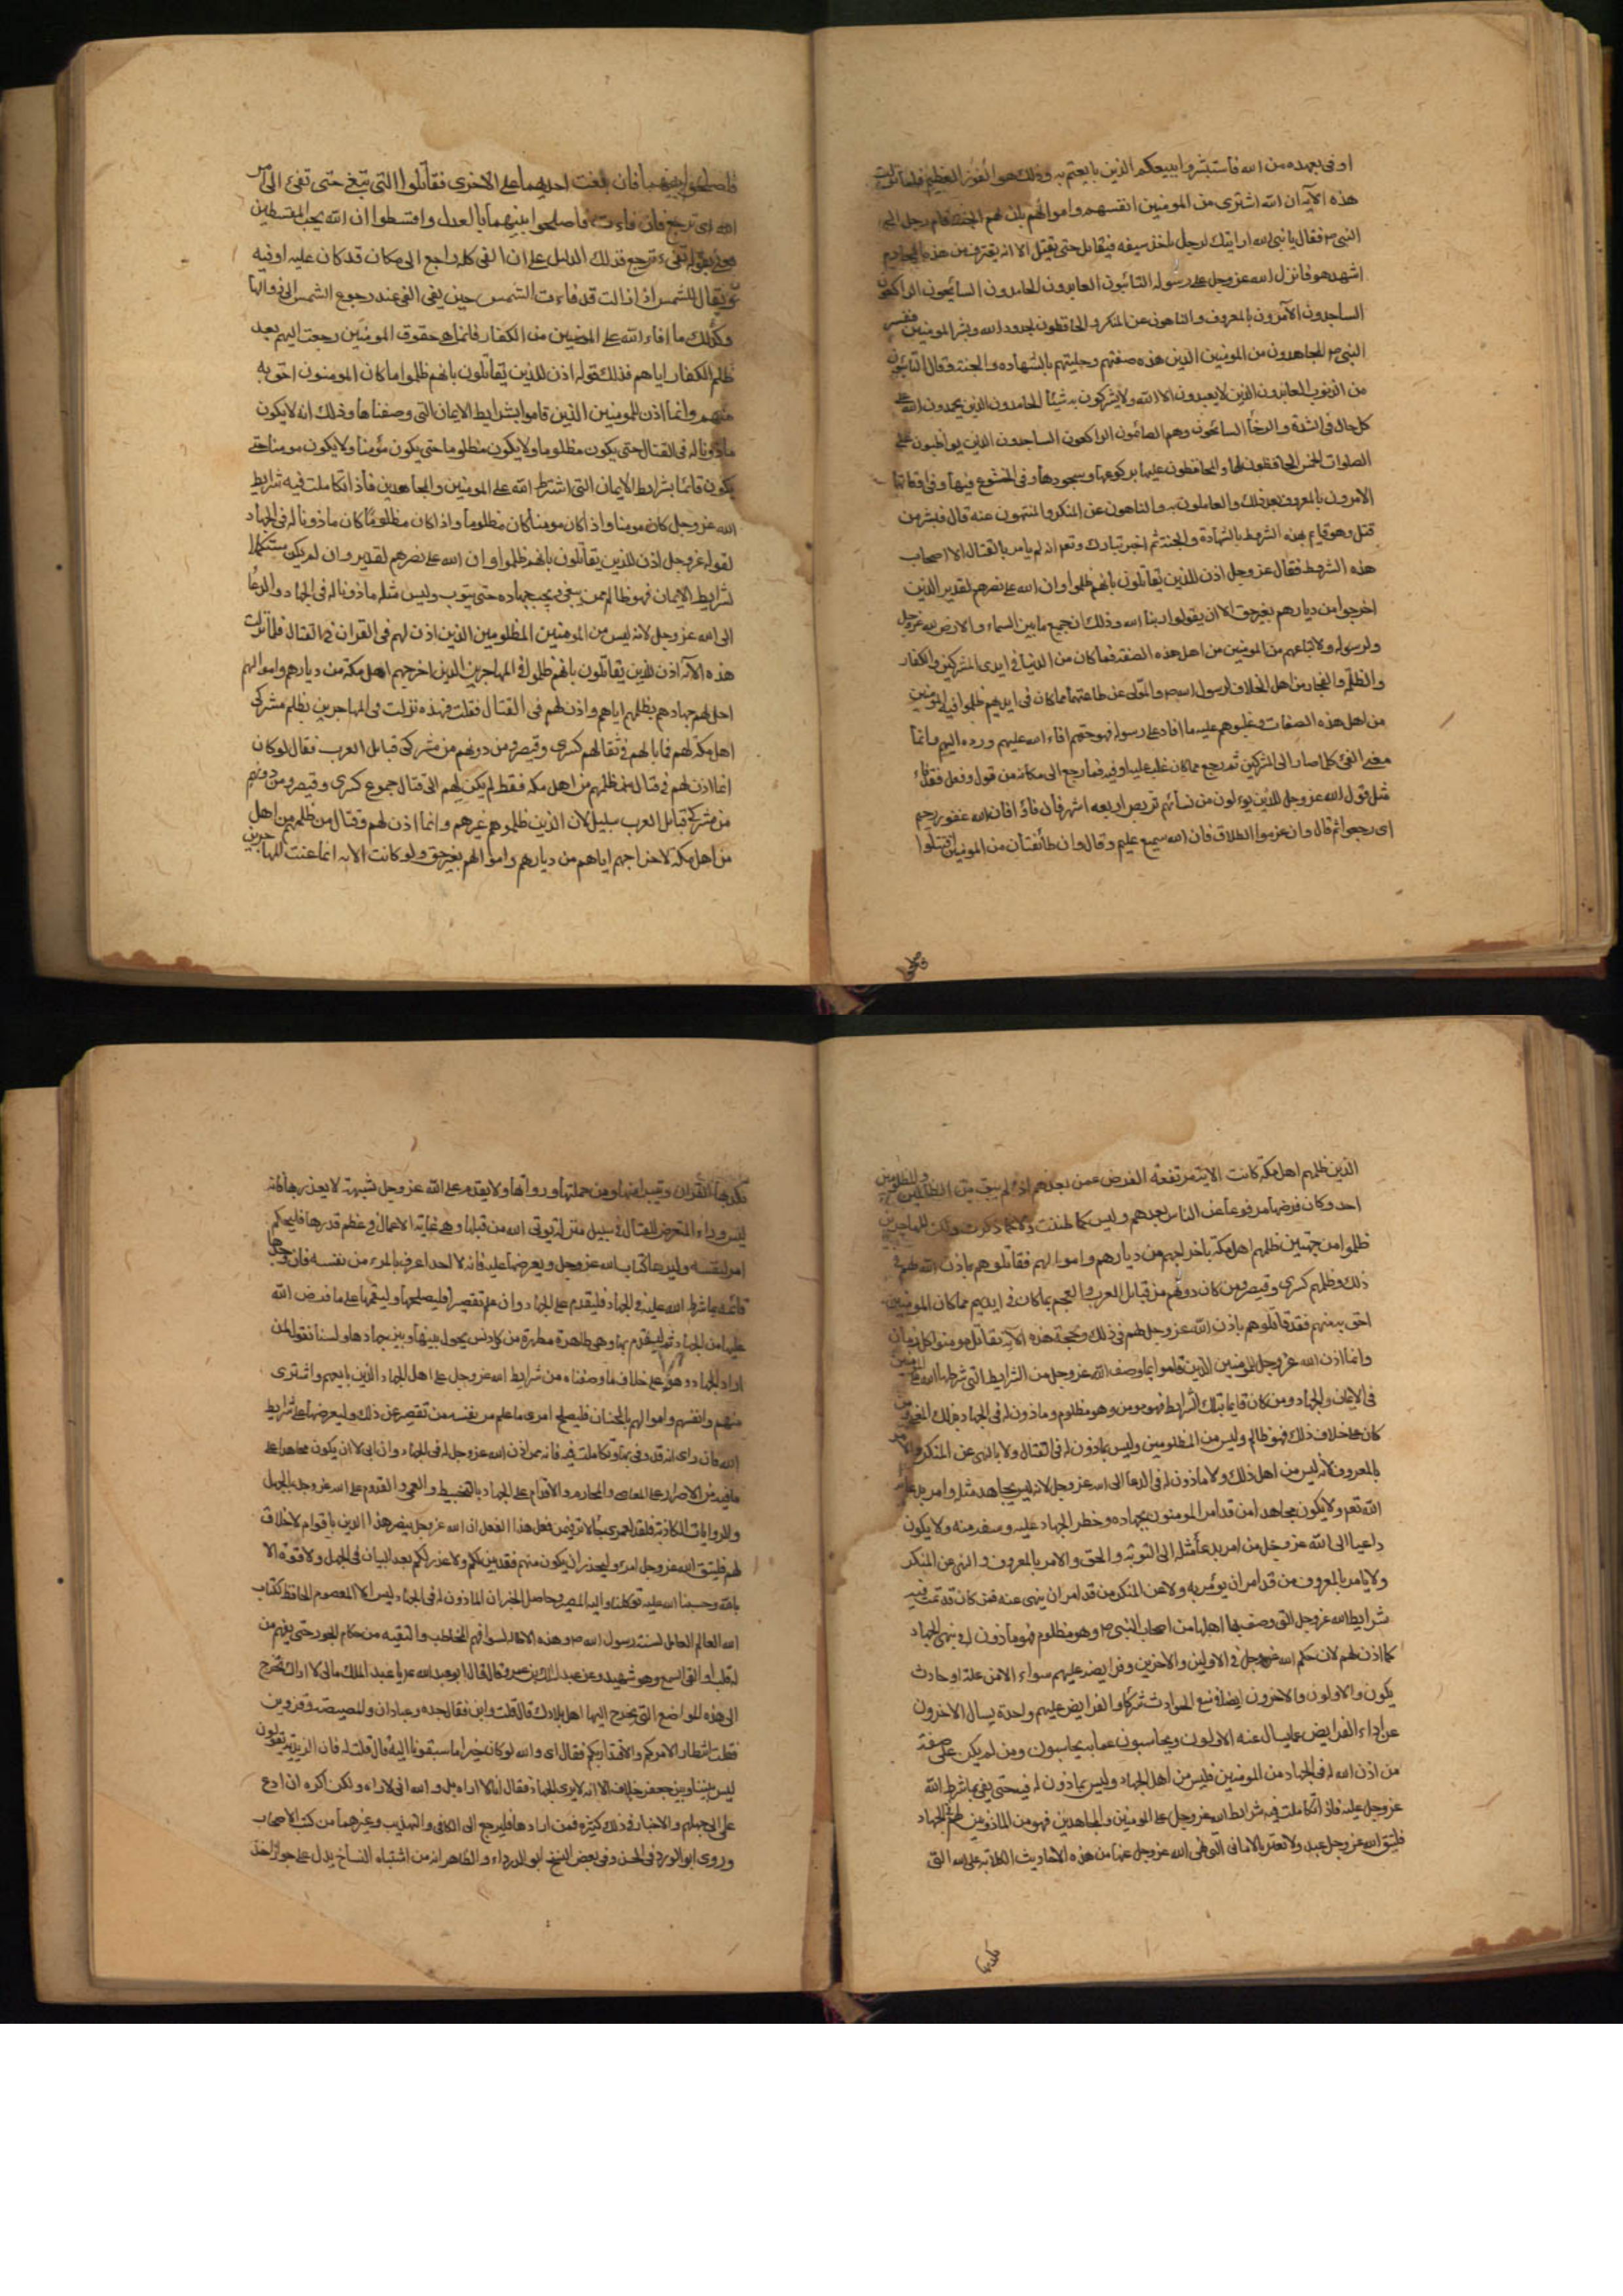 اوفى بعهده من الله فاستبشروا ببيعكم الذين بايعتم به وذلك هو الفوز العظيم فلما نزلت
هذه الآية ان الله اشترى من المومنين انفسهم واموالهم بان لهم الجنة قام رجل الى
النبى ص فقال يا نبى الله ارايتك الرجل ياخذ سيفه فيقاتل حتى يقتل الا انه يقترف من هذه المحارم
اشهيد هو فانزل الله عز وجل على رسوله التائبون العابدون الحامدون السائحون الراكعون
الساجدون الآمرون بالمعروف والناهون عن المنكر والحافظون لحدود الله وبشر المومنين ففسر
النبى ص المجاهدون من المومنين الذين هذه صفتهم وحليتهم بالشهاده والجنة وقال التائبون
من الذنوب العابدون الذين لا يعبدون الا الله ولا يشركون به شيئا الحامدون الذين يحمدون الله على
كل حال فى الشدة والرخا السائحون وهم الصائمون الراكعون الساجدون الذين يواظبون على
الصلوات الخمس الحافظون لها والحافظون عليها بركوعها وسجودها وفى الخشوع فيها وفى اوقاتها
الامرون بالمعروف بعد ذلك والعاملون به والناهون عن المنكر والمنتهون عنه قال فبشر من
قتل وهو قايم بهذه الشروط بالشهادة والجنة ثم اخبر تبارك وتعم انه لم يامر بالقتال الا اصحاب
هذه الشروط فقال عز وجل اذن للذين يقاتلون بانهم ظلموا وان الله على نصرهم لقدير الذين
اخرجوا من ديارهم بغير حق الا ان يقولوا ربنا الله وذلك ان جميع ما بين السماء والارض لله عز وجل
ولرسوله ولاتباعهم من المومنين من اهل هذه الصفة فما كان من الدنيا فى ايدى المشركين والكفار
والظلمة والفجار من اهل الخلاف لرسول الله ص والمولى عن طاعتهما مما كان فى ايديهم ظلموا فيه المومنين
من اهل هذه الصفات وغلبوهم عليه ما افاء على رسوله فهو حقهم افاء الله عليهم ورده اليهم وانما
معنى الفئ كلما صار الى المشركين ثم رجع مما كان غلب عليه او فيه فما رجع الى مكانه من قول وفعل فقد فاء
مثل قول الله عز وجل للذين يولون من نسائهم تربص اربعه اشهر فان فاؤا فان الله غفور رحيم
اى رجعوا ثم قال وان عزموا الطلاق فان الله سميع عليم وقال وان طائفتان من المومنين اقتتلوا
فاصلحوا بينهما فان بغت احديهما على الاخرى فقاتلوا التى تبغى حتى تفئ الى امر
الله اى ترجع فان فاءت فاصلحوا بينهما بالعدل واقسطوا ان الله يحب المقسطين
يعنى بقوله تفىء ترجع فذلك الدليل على ان الفئ كل راجع الى مكان قد كان عليه او فيه
ويقال للشمس اذا زالت قد فاءت الشمس حين يفئ الفئ عند رجوع الشمس الى زوالها
وكذلك ما افاء الله على المومنين من الكفار فانما هى حقوق المومنين رجعت اليهم بعد
ظلم الكفار اياهم فذلك قوله اذن للذين يقاتلون بانهم ظلموا ما كان المومنون احق به
منهم وانما اذن للمومنين الذين قاموا بشرايط الايمان التى وصفناها وذلك انه لا يكون
ماذونا له فى القتال حتى يكون مظلوما ولا يكون مظلوما حتى يكون مؤمنا ولا يكون مومنا حتى
يكون قائما بشرايط الايمان التى اشترط الله على المومنين والمجاهدين فاذا تكاملت فيه شرايط
الله عز وجل كان مومنا واذا كان مومنا كان مظلوما واذا كان مظلوما كان ماذونا له فى الجهاد
لقوله عز وجل اذن للذين يقاتلون بانهم ظلموا وان الله على نصرهم لقدير وان لم يكن مستكملا
لشرايط الايمان فهو ظالم ممن يبغى ويجب جهاده حتى يتوب وليس مثله ماذونا له فى الجهاد والدعا
الى الله عز وجل لانه ليس من المومنين المظلومين الذين اذن لهم فى القران فى القتال فلما نزلت
هذه الآية اذن للذين يقاتلون بانهم ظلموا فى المهاجرين الذين اخرجهم اهل مكة من ديارهم واموالهم
احل لهم جهادهم بظلمهم اياهم واذن لهم فى القتال فقلت فهذه نزلت فى المهاجرين بظلم مشركى
اهل مكة لهم فما بالهم فى قتالهم كسرى وقيصر ومن دونهم من مشركى قبايل العرب فقال لو كان
انما اذن لهم فى قتال من ظلمهم من اهل مكه فقط لم يكن لهم الى قتال جموع كسرى وقيصر ومن دونهم
من مشركى قبايل العرب سبيل لان الذين ظلموهم غيرهم وانما اذن لهم فى قتال من ظلمهم من اهل
من اهل مكة لاخراجهم اياهم من ديارهم واموالهم بغير حق ولو كانت الايه انما عنت المهاجرين
الذين ظلمهم اهل مكة كانت الاية مرتفعة الفرض عمن بعدهم اذ لم يبق من الظالمين والمظلومين
احد وكان فرضها مرفوعا عن الناس بعدهم وليس كما ظننت ولا كما ذكرت ولكن المهاجرين
ظلموا من جهتين ظلمهم اهل مكة باخراجهم من ديارهم واموالهم فقاتلوهم باذن الله لهم فى
ذلك وظلمهم كسرى وقيصر ومن كان دونهم من قبايل العرب والعجم بما كان فى ايديهم مما كان المومنين
احق به منهم فقد قاتلوهم باذن الله عز وجل لهم فى ذلك وبحجة هذه الآية يقاتل مومنوا كل زمان
وانما اذن الله عز وجل للمومنين الذين قاموا بما وصف الله عز وجل من الشرايط التى شرطها الله على المومنين
فى الايمان والجهاد ومن كان قايما بتلك الشرايط فهو مومن وهو مظلوم وماذون له فى الجهاد بذلك المعنى ومن
كان على خلاف ذلك فهو ظالم وليس من المظلومين وليس بماذون له فى القتال ولا بالنهى عن المنكر والامر
بالمعروف لانه ليس من اهل ذلك ولا ماذون له فى الدعا الى الله عز وجل لانه ليس يجاهد مثله وامر بدعائه
الله تعم ولا يكون مجاهدا من قد امر المومنون بجهاده وحظر الجهاد عليه ومنعه منه ولا يكون
داعيا الى الله عز وجل من امر بدعا مثله الى التوبة والحق والامر بالمعروف والنهى عن المنكر
ولا يامر بالمعروف من قد امر ان يؤمر به ولا عن المنكر من قد امر ان ينهى عنه فمن كان قد تمت فيه
شرايط الله عز وجل التى وصف بها اهلها من اصحاب النبى ص وهو مظلوم فهو ماذون له فى الجهاد
كما اذن لهم لان حكم الله عز وجل فى الاولين والاخرين وفرايضه عليهم سواء الا من علة او حادث
يكون والاولون والاخرون ايضا فى منع الحوادث شركا والفرايض عليهم واحدة يسال الاخرون
عن اداء الفرايض عما يسال عنه الاولون ويحاسبون عما به يحاسبون ومن لم يكن على صفة
من اذن الله له فى الجهاد من المومنين فليس من اهل الجهاد وليس بماذون له فيه حتى يفى بما شرط الله
عز وجل عليه فاذا تكاملت فيه شرايط الله عز وجل على المومنين والمجاهدين فهو من الماذونين لهم فى الجهاد
فليتق الله عز وجل عبد ولا يغتر بالامانى التى نهى الله عز وجل عنها من هذه الاحاديث الكاذبة على الله التى
يكذبها القران ويتبرا منها ومن حملتها ورواتها ولا يقدم على الله عز وجل بشبهة لا يعذر بها فانه
ليس وراء المتعرض للقتل فى سبيل الله منزلة يوتى الله من قبلها وهى غاية الاعمال فى عظم قدرها فليحكم
امرء لنفسه وليرها كتاب الله عز وجل ويعرضها عليه فانه لا احد اعرف بالمرء من نفسه فان وجدها
قائمة بما شرط الله عليه فى الجهاد فليقدم على الجهاد وان علم تقصيرا فليصلحها وليقمها على ما فرض الله
عليها من الجهاد ثم ليقدم بها وهى طاهرة مطهرة من كل دنس يحول بينها وبين جهادها ولسنا نقول لمن
اراد الجهاد وهو على خلاف ما وصفناه من شرايط الله عز وجل على اهل الجهاد الذين بايعهم واشترى
منهم وانفسهم واموالهم بالجنان فليصلح امرء ما علم من نفسه من تقصير عن ذلك وليعرضها على شرايط
الله فان راى انه قد وفى بها وتكاملت فيه فانه ممن اذن الله عز وجل له فى الجهاد وان ابى الا ان يكون مجاهدا على
ما فيه من الاصرار على المعاصى والمحارم والاقدام على الجهاد بالتخبيط والعمى والقدوم على الله عز وجل بالجهل
والروايات الكاذبة فلقد لعمرى جاء الاثر فيمن فعل هذا الفعل ان الله عز وجل ينصر هذا الدين باقوام لا خلاق
لهم فليتق الله عز وجل امرء وليحذر ان يكون منهم فقد بين لكم ولا عذر لكم بعد البيان فى الجهل ولا قوة الا
بالله وحسبنا الله عليه توكلنا واليه المصير وحاصل الخبر ان الماذون له فى الجهاد ليس الا المعصوم الحافظ لكتاب
الله العالم العامل لسنة رسول الله ص وهذه الافادة لسوء فهم المخاطب والتقيه من حكام الجور حتى يفهم من
له قلب او القى السمع وهو شهيد وعن عبد الملك بن عمرو قال قال لى ابو عبد الله ع يا عبد الملك ما لى لا اراك تخرج
الى هذه المواضع التى يخرج اليها اهل بلادك قال قلت واين فقال جده وعبادان والمصيصة وقزوين
فقلت انتظارا لامركم والاقتداء بكم فقال اى والله لو كان خيرا ما سبقونا اليه قال قلت له فان الزيدية يقولون
ليس بيننا وبين جعفر خلاف الا انه لا يرى الجهاد فقال انا لا اراه بلى والله انى لاراه ولكن اكره ان ادع
على الى جهلهم والاخبار فى ذلك كثيرة فمن ارادها فليرجع الى الكافى والتهذيب وغيرهما من كتب الاصحاب
وروى ابو الورد فى الحسن وفى بعض النسخ ابو الدرداء والظاهر انه من اشتباه النساخ يدل على جواز اخذ